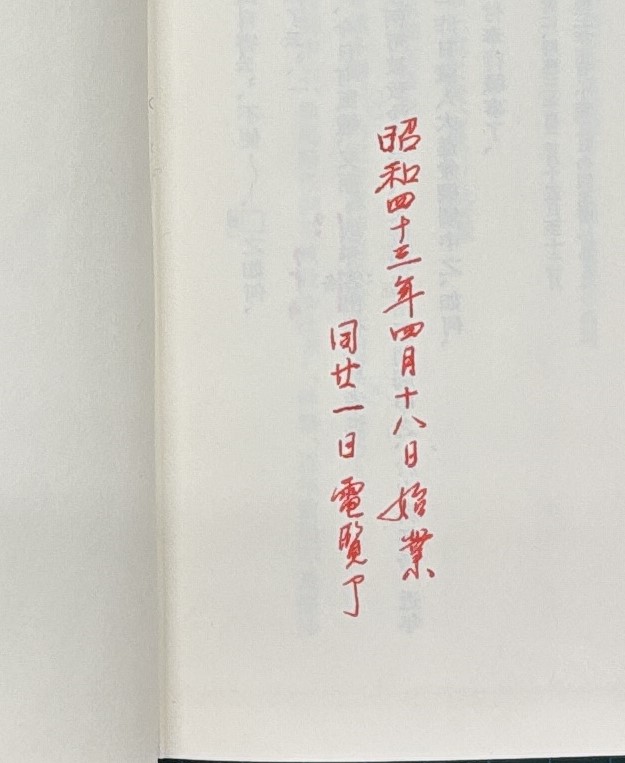 昭和四十三年四月十八日始業
同廿一日電覧了